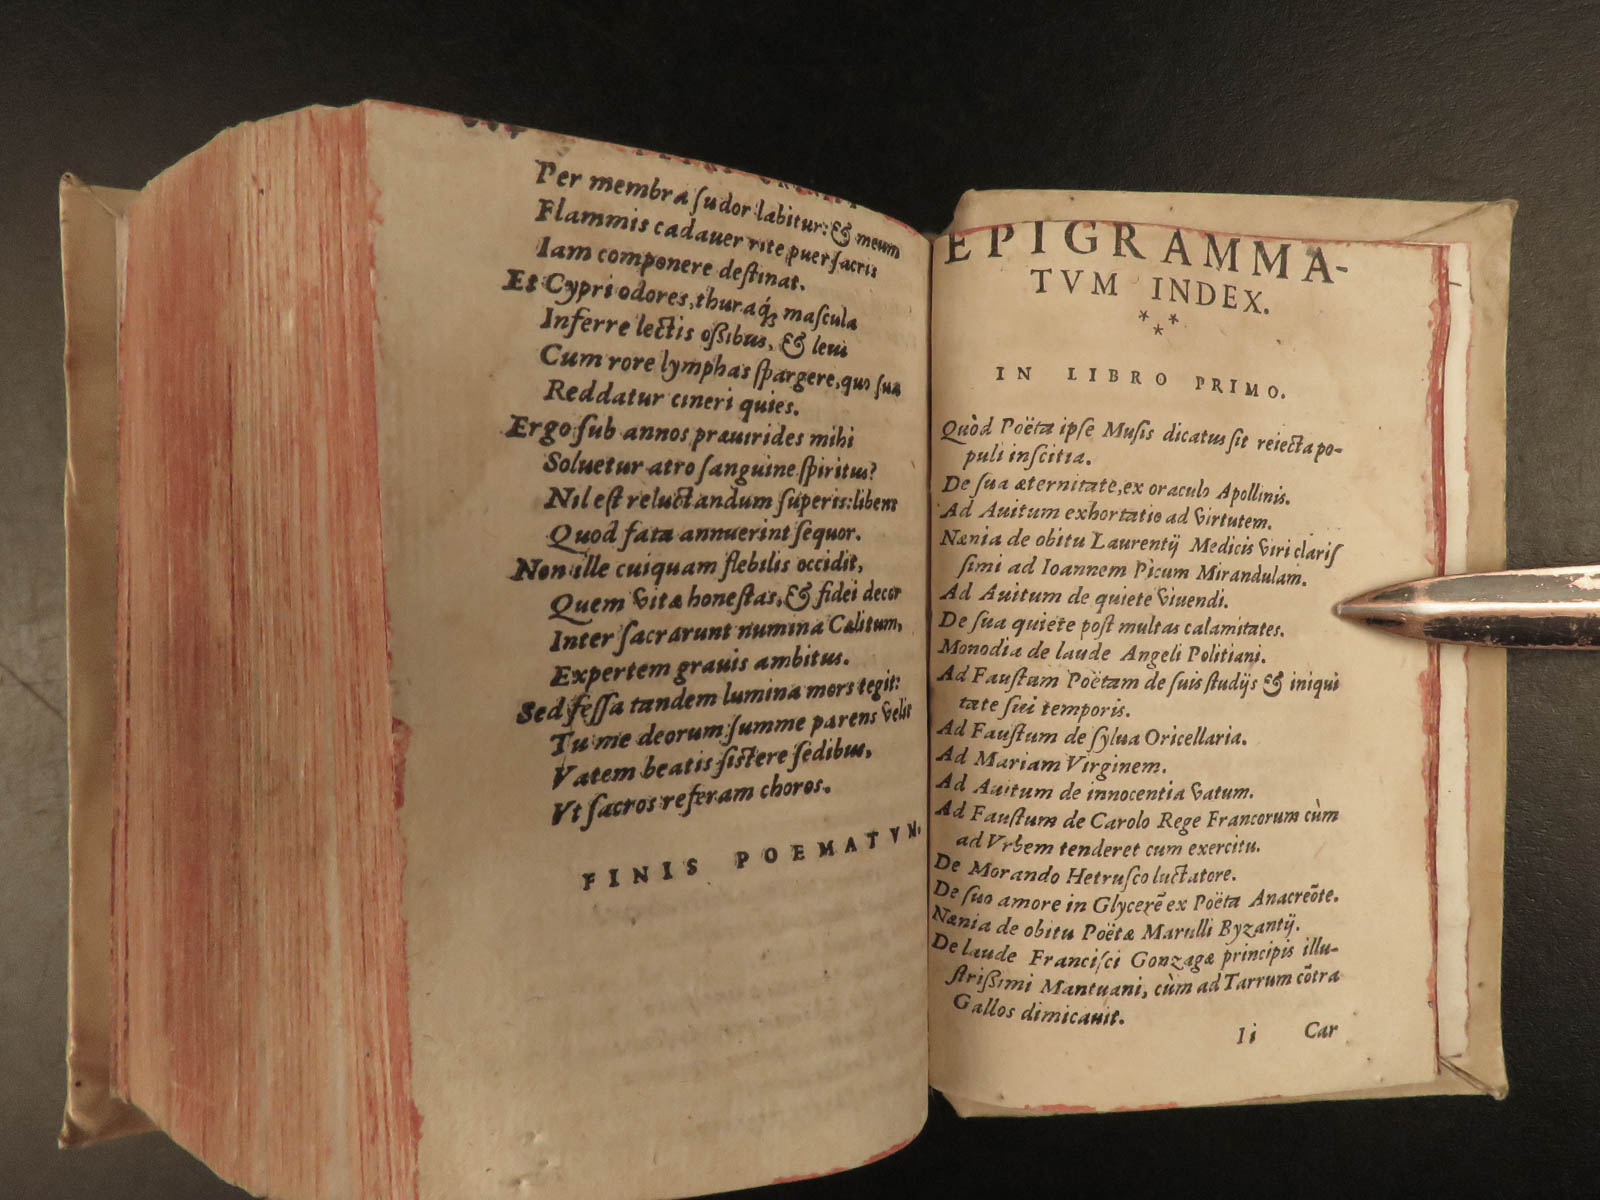 Per membra ſudor labitur: & meum
Flammis cadauer rite puer ſacris
Iam componere deſtinat.
Et Cypri odores, thuraq́; maſcula
Inferre lectis oſsibus, & leui
Cum rore lymphas ſpargere, quo ſua
Reddatur cineri quies.
Ergo ſub annos præuirides mihi
Soluetur atro ſanguine ſpiritus?
Nil eſt reluctandum ſuperis: libens
Quod fata annuerint ſequor.
Non ille cuiquam flebilis occidit,
Quem vitæ honeſtas, & fidei decor
Inter ſacrarunt numina Cælitum,
Expertem grauis ambitus.
Sed feſſa tandem lumina mors tegit:
Tu me deorum ſumme parens velis
Vatem beatis ſiſtere ſedibus,
Vt ſacros referam choros.
FINIS POEMATVM.
EPIGRAMMA-
TVM INDEX.
***
IN LIBRO PRIMO.
Quòd Poëta ipſe Muſis dicatus ſit reiecta po-
puli inſcitia.
De ſua æternitate, ex oraculo Apollinis.
Ad Auitum exhortatio ad virtutem.
Nænia de obitu Laurentij Medicis viri clariſ
ſimi ad Ioannem Picum Mirandulam.
Ad Auitum de quiete viuendi.
De ſua quiete poſt multas calamitates.
Monodia de laude Angeli Politiani.
Ad Fauſtum Poëtam de ſuis ſtudijs & iniqui
tate ſui temporis.
Ad Fauſtum de ſylua Oricellaria.
Ad Mariam Virginem.
Ad Auitum de innocentia vatum.
Ad Fauſtum de Carolo Rege Francorum cùm
ad Vrbem tenderet cum exercitu.
De Morando Hetruſco luctatore.
De ſuo amore in Glycerẽ ex Poëta Anacreõte.
Nænia de obitu Poëtæ Marulli Byzantij.
De laude Franciſci Gonzagæ principis illu-
ſtriſsimi Mantuani, cùm ad Tarrum cõtra
Gallos dimicauit.
Ii Car